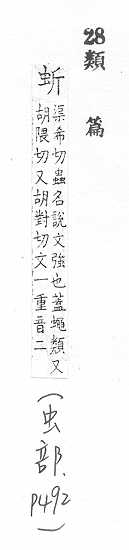 28類篇
蚚
渠希切蟲名說文強也蓋蠅類又
胡隈切又胡對切文一重音二
(虫部. P492)